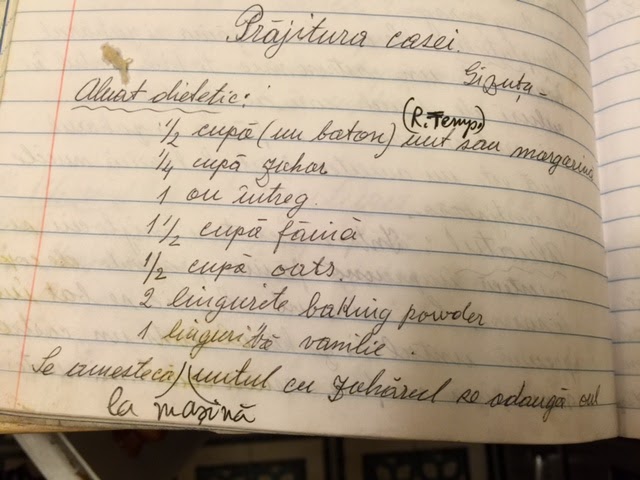 Prăjitura casei.
Gizuța
Aluat dietetic:
(R. Temp.)
1/2 cupă (un baton) unt sau margarină
1/4 cupă zahar
1 ou întreg.
1 1/2 cupă făină
1/2 cupă oats.
2 lingurite baking powder
1 linguriță vanilie.
Se amestecă untul cu zahărul se adaugă oul
la mașină